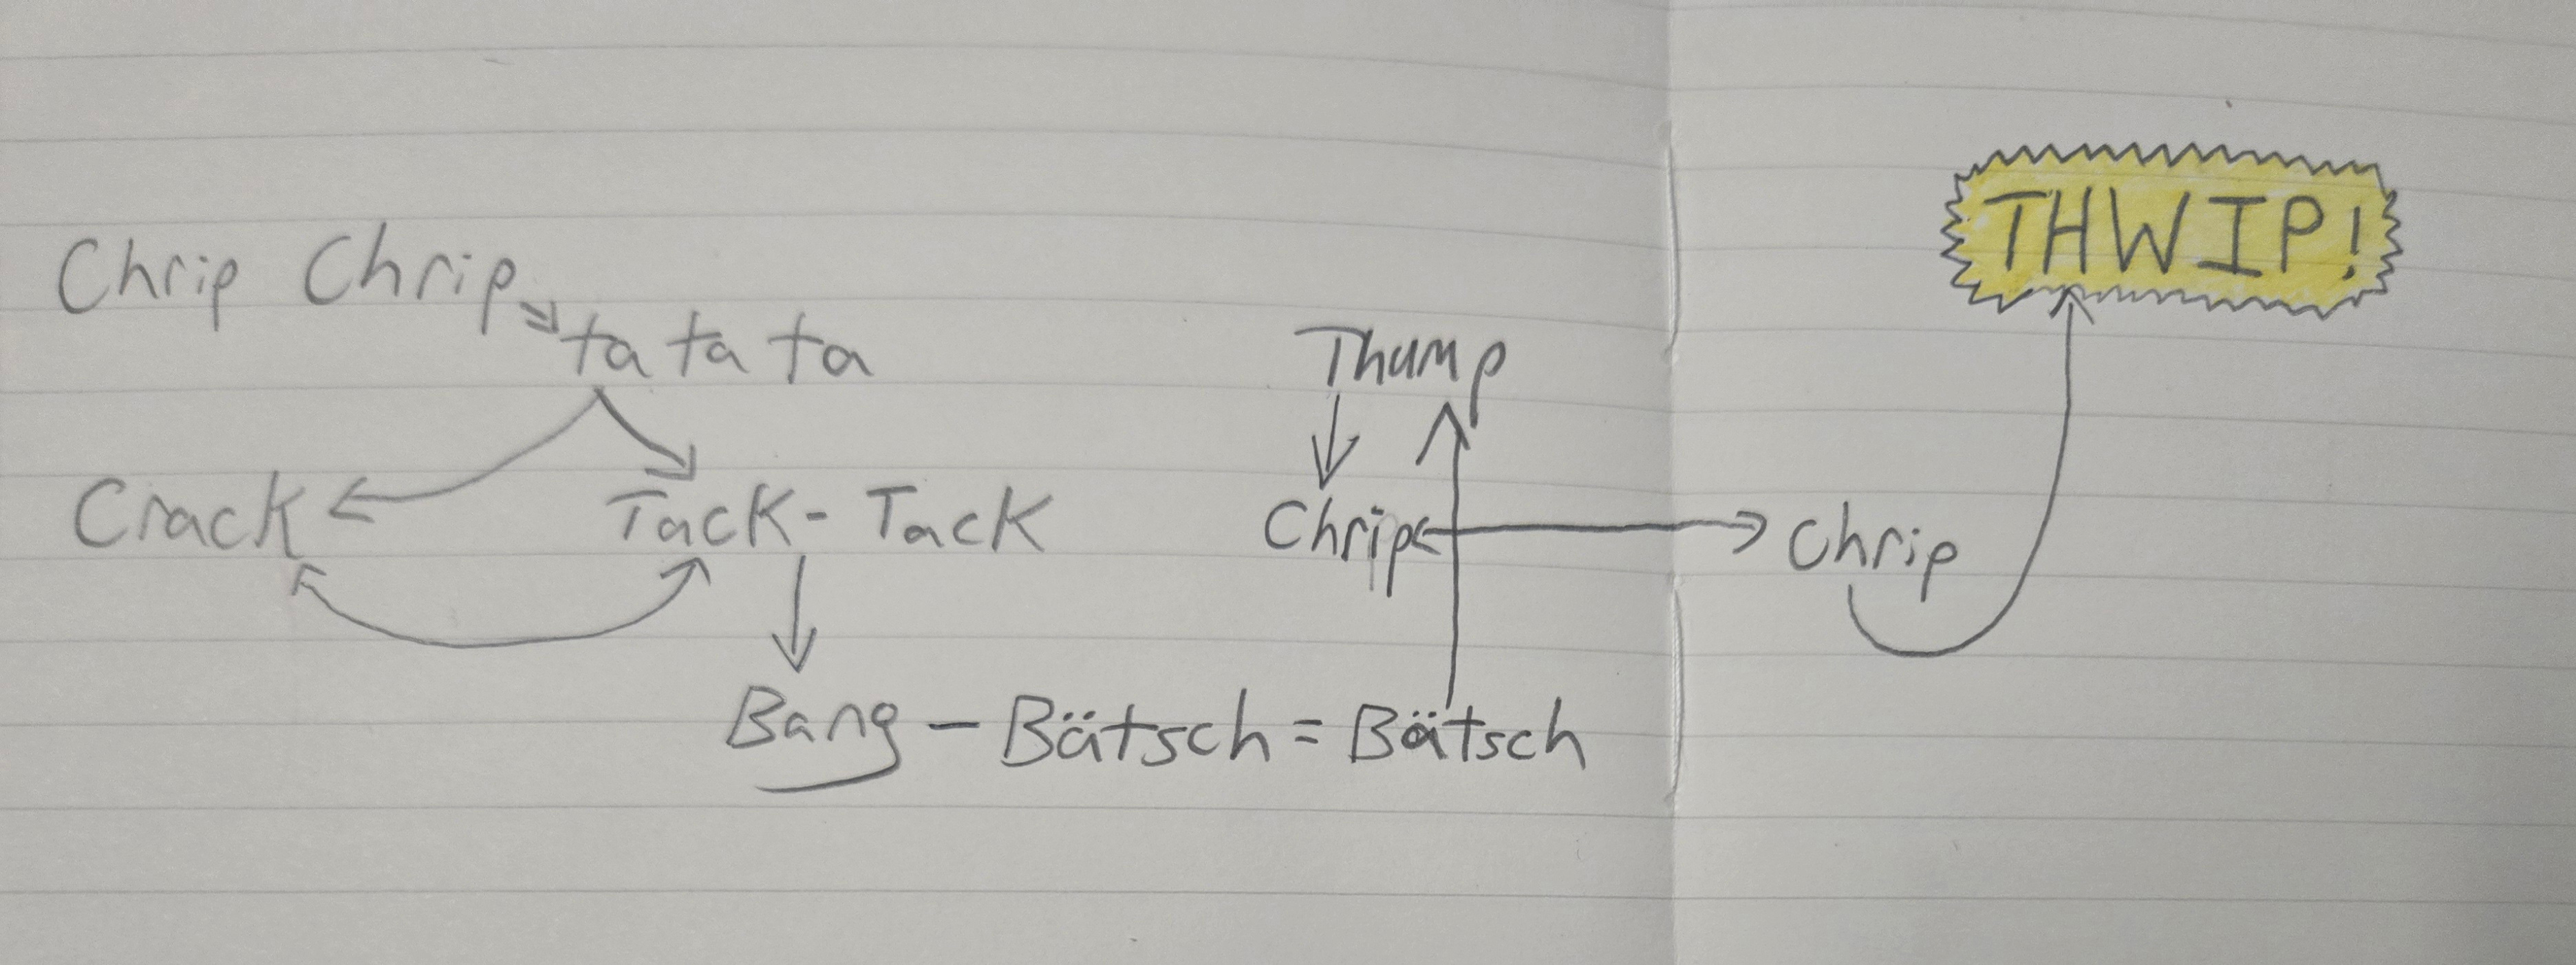 Chrip Chrip
ta ta ta
Crack
Tack - Tack
Bang - Bätsch = Bätsch
Thump
Chrip
Chrip
THWIP!